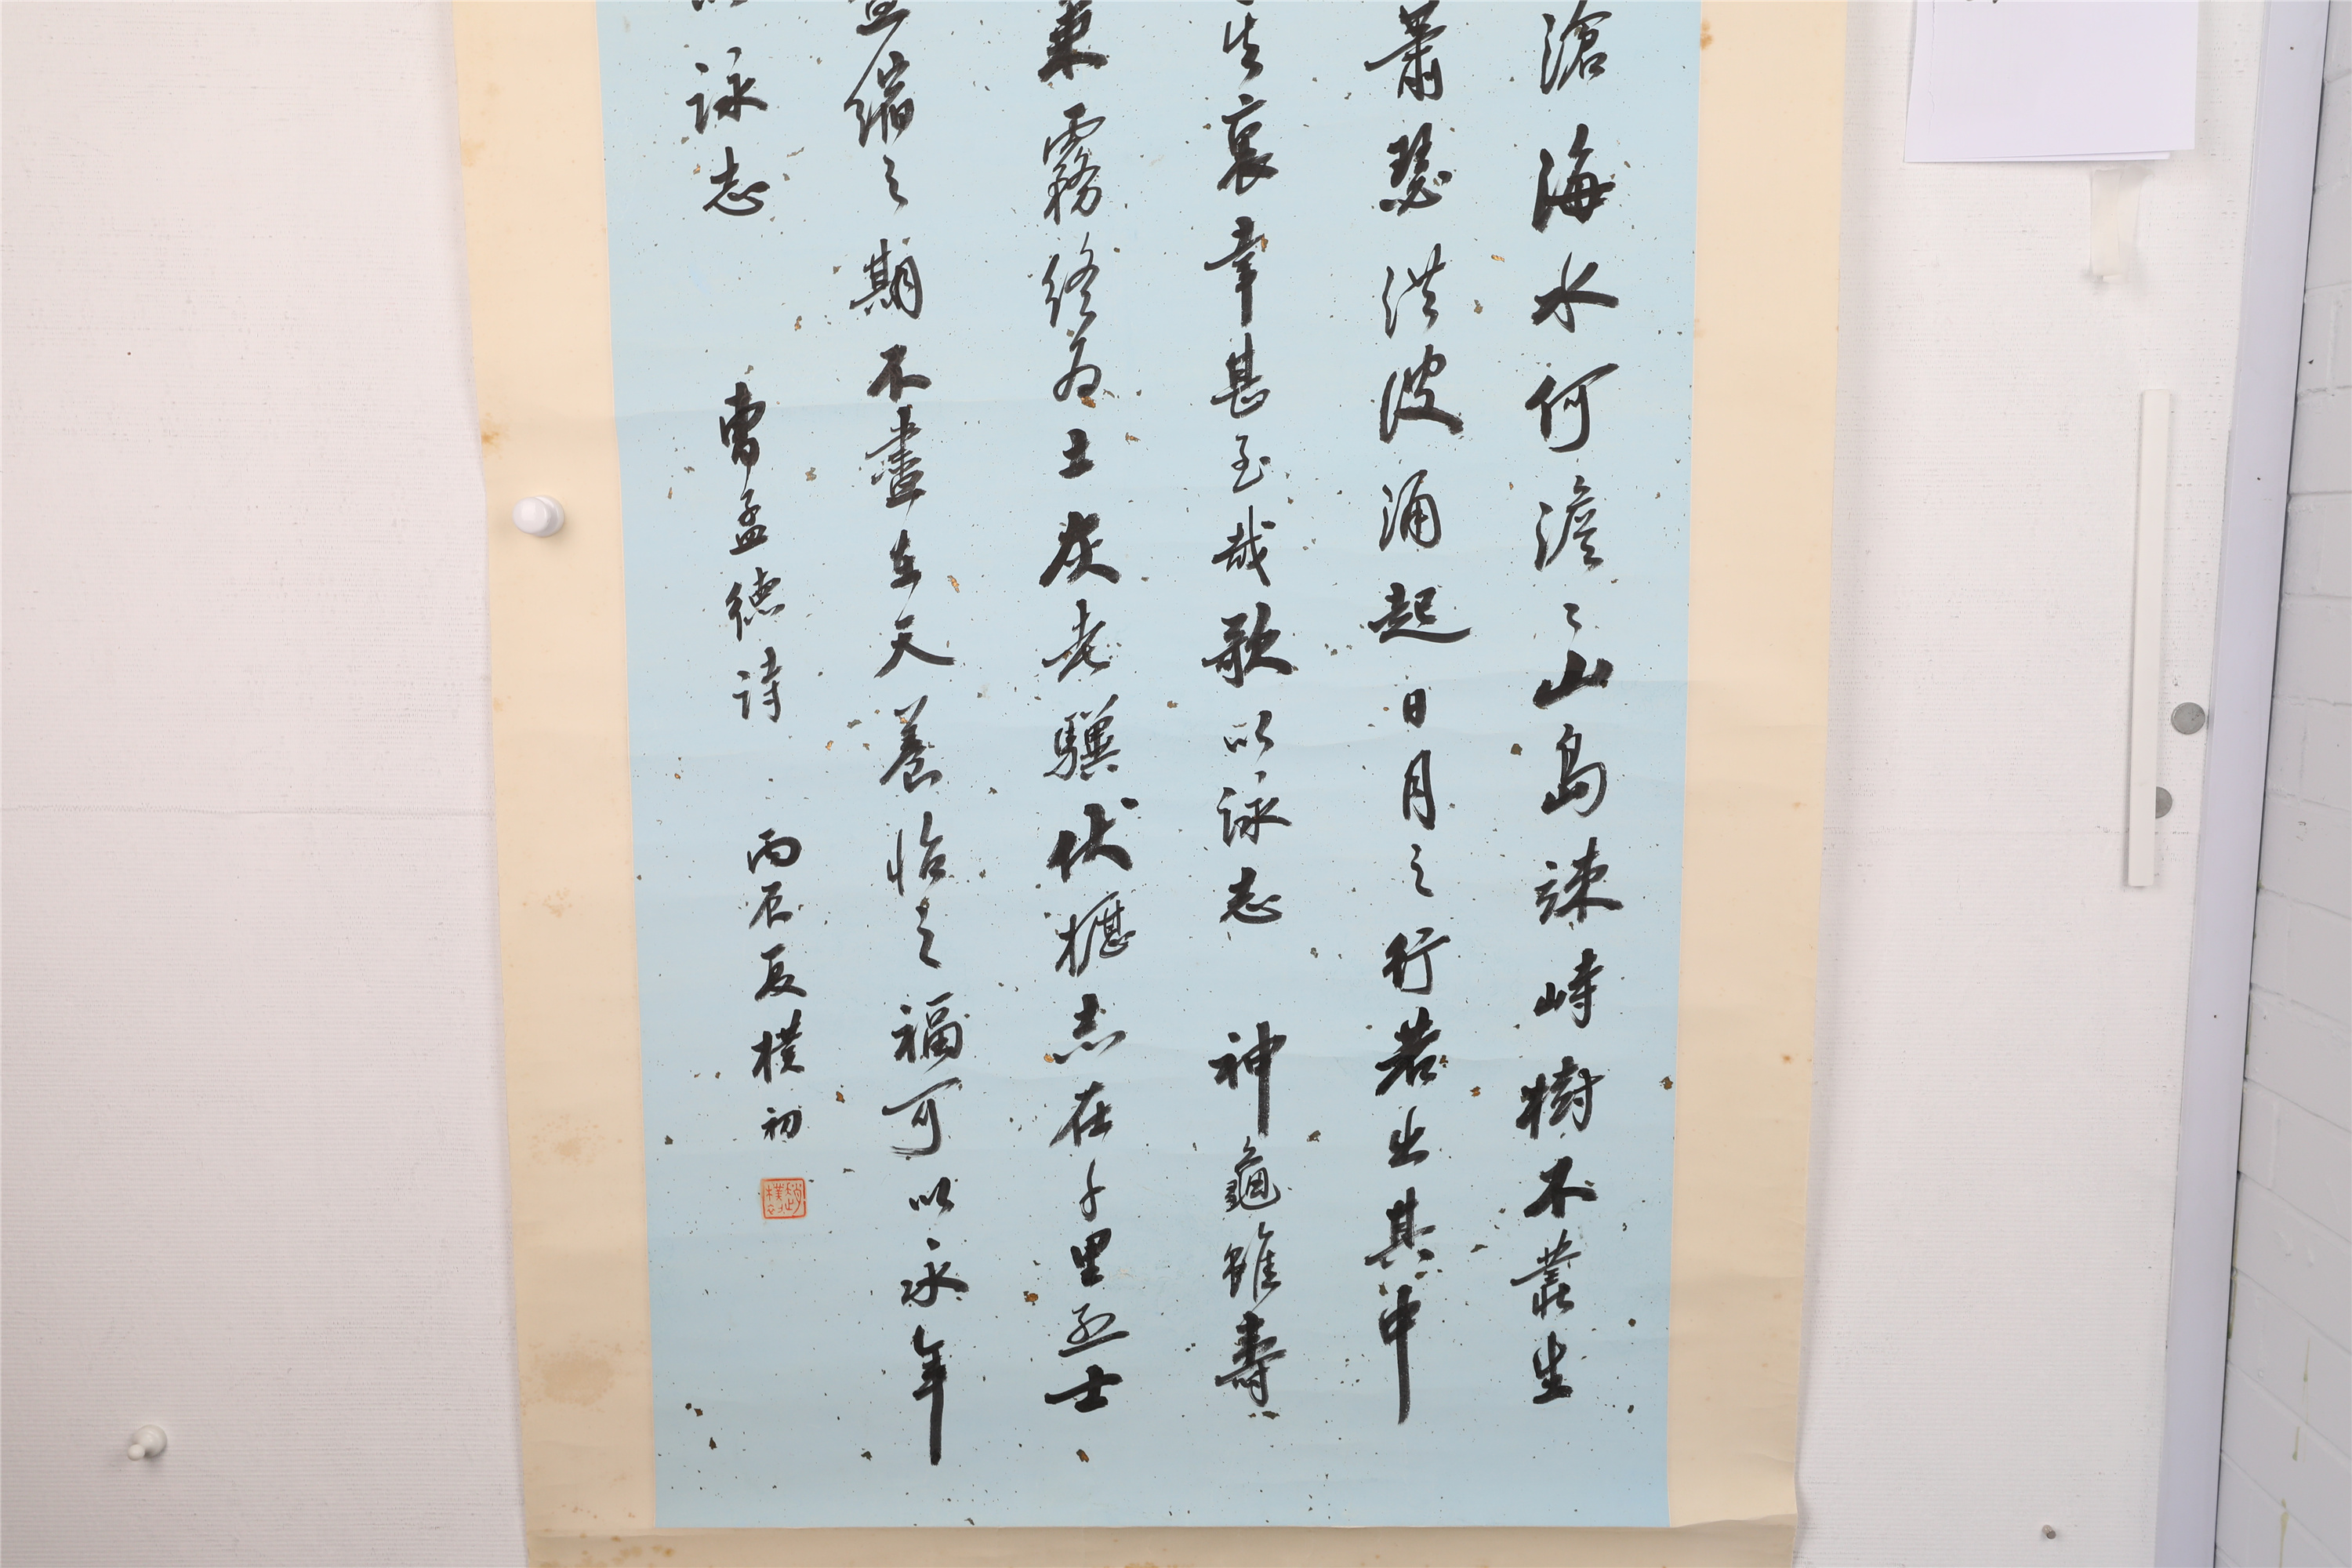 滄海水何澹〻山島竦峙樹木叢生
蕭瑟洪波涌起日月之行若出其中
其裏幸甚至哉歌以詠志 神龜雖壽
乘霧終为土灰老驥伏櫪志在千里烈士
縮之期不盡在天養怡之福可以永年
詠志 曹孟德詩 丙辰夏樸初
趙樸初